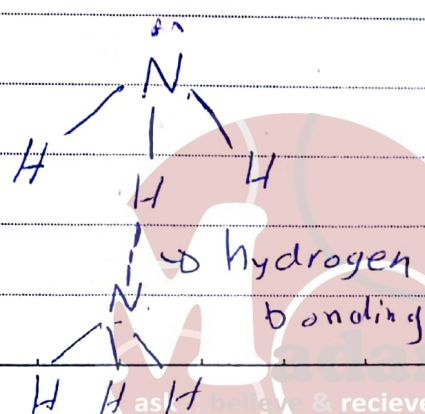 N
H H H
hydrogen
N bonding
H H H
ask believe & recieve